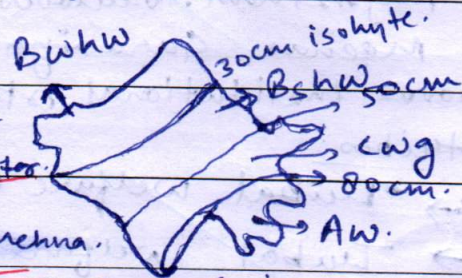 BWhW
30cm isohyte.
BshW
50cm
CWg
80cm.
AW.